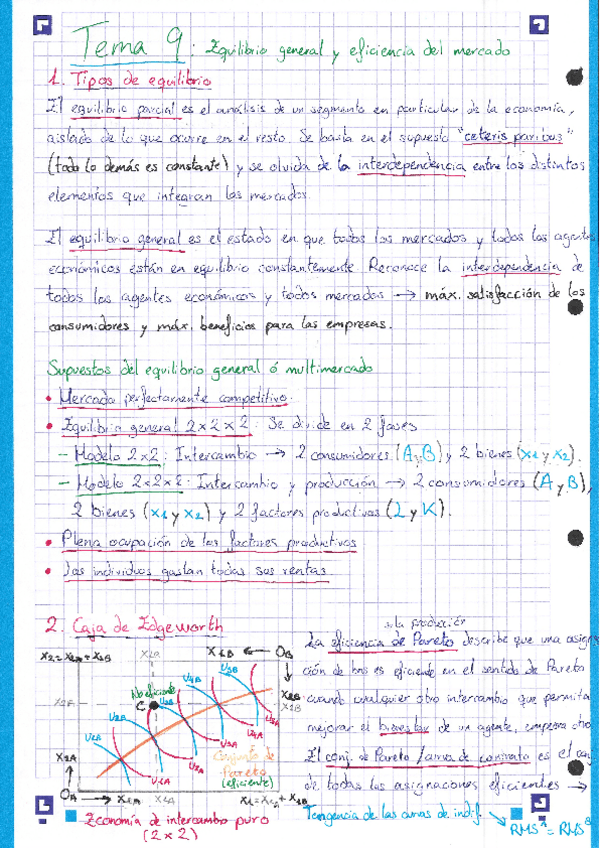 Tema 9: Equilibrio general y eficiencia del mercado
1. Tipos de equilibrio
El equilibrio parcial es el análisis de un segmento en particular de la economía,
aislado de lo que ocurre en el resto. Se basta en el supuesto "ceteris paribus"
(todo lo demás es constante) y se olvida de la interdependencia entre los distintos
elementos que integran los mercados.
El equilibrio general es el estado en que todos los mercados y todos los agentes
económicos están en equilibrio constantemente. Reconoce la interdependencia de
todos los agentes económicos y todos mercados → máx. satisfacción de los
consumidores y máx. beneficios para las empresas.
Supuestos del equilibrio general ó multimercado
• Mercado perfectamente competitivo.
• Equilibrio general 2x2x2: Se divide en 2 fases
- Modelo 2x2: Intercambio → 2 consumidores (A y B) y 2 bienes (x1 y x2).
- Modelo 2x2x2: Intercambio y producción → 2 consumidores (A y B),
2 bienes (x1 y x2) y 2 factores productivos (L y K).
• Plena ocupación de los factores productivos
• Los individuos gastan todas sus rentas
2. Caja de Edgeworth
x2 = x2A + x2B
X2A
X1B ← OB
No eficiente
C
U1B
U2B
U3B
U4B
U5B
U1A
U2A
U3A
U4A
U5A
X2B
X2B
X2A
Conjunto de
Pareto
(eficiente)
OA → X1A
X1A
X1 = X1A + X1B
Economía de intercambio puro
(2x2)
la producción
La eficiencia de Pareto describe que una asign
ción de bns es eficiente en el sentido de Pareto
cuando cualquier otro intercambio que permita
mejorar el bienestar de un agente, empeora otro
El conj. de Pareto / curva de contrato es el conj
de todas las asignaciones eficientes →
Tangencia de las curvas de indif.
RMS A = RMS B